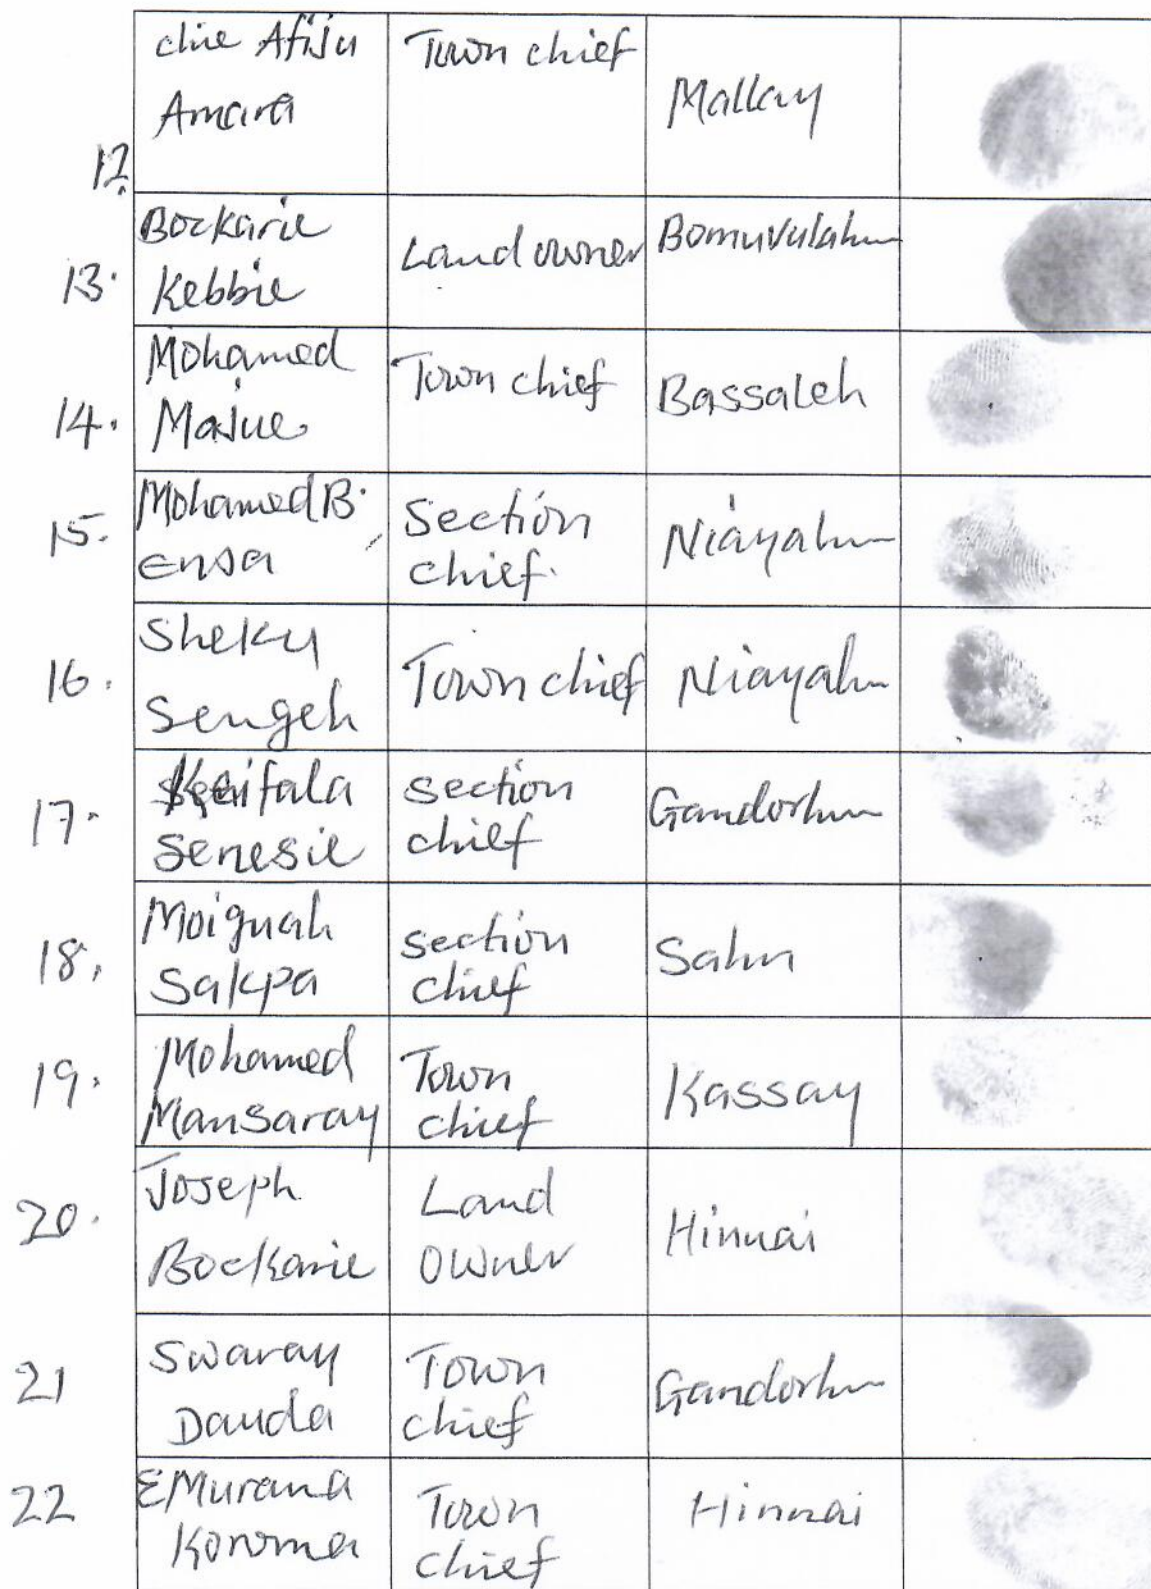 12. chie Afiju Amara Town chief Mallay
13. Bockarie Kebbie Land owner Bomuvulahun
14. Mohamed Majue Town chief Bassaleh
15. Mohamed B. Ensa Section chief. Niayahun
16. Sheku Sengeh Town chief Niayahun
17. Keifala Senesie section chief Gandorhun
18. Moiguah Sakpa section chief Sahn
19. Mohamed Mansaray Town chief Kassay
20. Joseph Bockarie Land owner Hinnai
21 Swaray Dauda Town chief Gandorhun
22 EMurana Koroma Town chief Hinnai